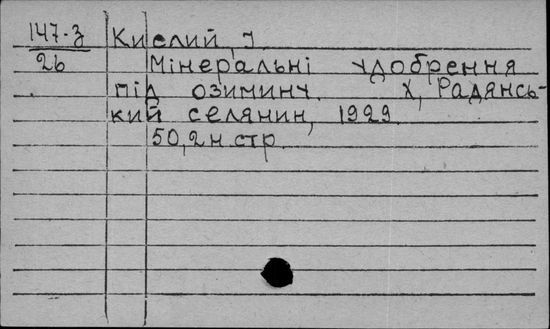 147-З Кислий, І
26 Мінеральні удобрення
під озимину. Х, Радянсь-
кий селянин, 1929.
50, 2 н стр.